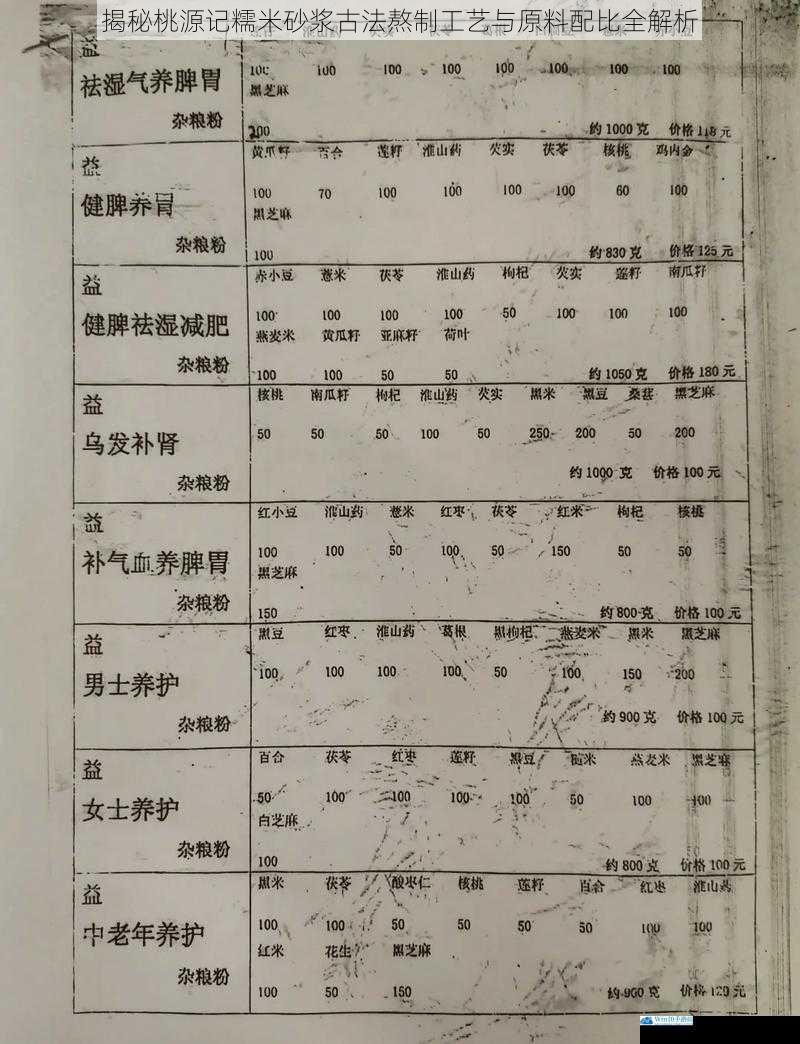 揭秘桃源记糯米砂浆古法熬制工艺与原料配比全解析
祛湿气养脾胃
杂粮粉
100 100 100 100 100 100 100 100
黑芝麻
200
约1000克 价格118元
益
健脾养胃
杂粮粉
黄瓜籽 百合 莲籽 淮山药 芡实 茯苓 核桃 鸡内金
100 70 100 100 100 100 60 100
黑芝麻
100
约830克 价格125元
益
健脾祛湿减肥
杂粮粉
赤小豆 薏米 茯苓 淮山药 枸杞 芡实 莲籽 南瓜籽
100 100 100 100 50 100 100 100
燕麦米 黄瓜籽 亚麻籽 荷叶
100 100 50 50
约1050克 价格180元
益
乌发补肾
杂粮粉
核桃 南瓜籽 枸杞 淮山药 芡实 黑米 黑豆 桑葚 黑芝麻
50 50 50 100 50 250 200 50 200
约1000 克 价格100元
益
补气血养脾胃
杂粮粉
红小豆 淮山药 薏米 红枣 茯苓 红米 枸杞 核桃
100 100 50 100 50 150 50 50
黑芝麻
150
约800克 价格100元
益
男士养护
杂粮粉
黑豆 红枣 淮山药 葛根 黑枸杞 燕麦米 黑米 黑芝麻
100 100 100 100 50 100 150 200
约900克 价格100元
益
女士养护
杂粮粉
百合 茯苓 红枣 莲籽 黑豆 燕麦米 黑芝麻
50 100 100 100 100 50 100 100
白芝麻
100
约800克 价格100元
益
中老年养护
杂粮粉
黑米 茯苓 酸枣仁 核桃 莲籽 百合 红枣 淮山药
100 100 50 50 50 50 100 100
红米 花生 黑芝麻
100 50 150
约900克 价格120元
Win10手游网